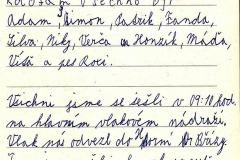 všechno
Adam, Šimon, Patrik, Fanda,
Silva, Nily, Verča a Honzík, Máďa,
Víťa a pes Roci.
Všichni jsme se sešli v 09:10 hod.
na hlavním vlakovém nádraží.
Vlak nás odvezl do Horní Břízy.